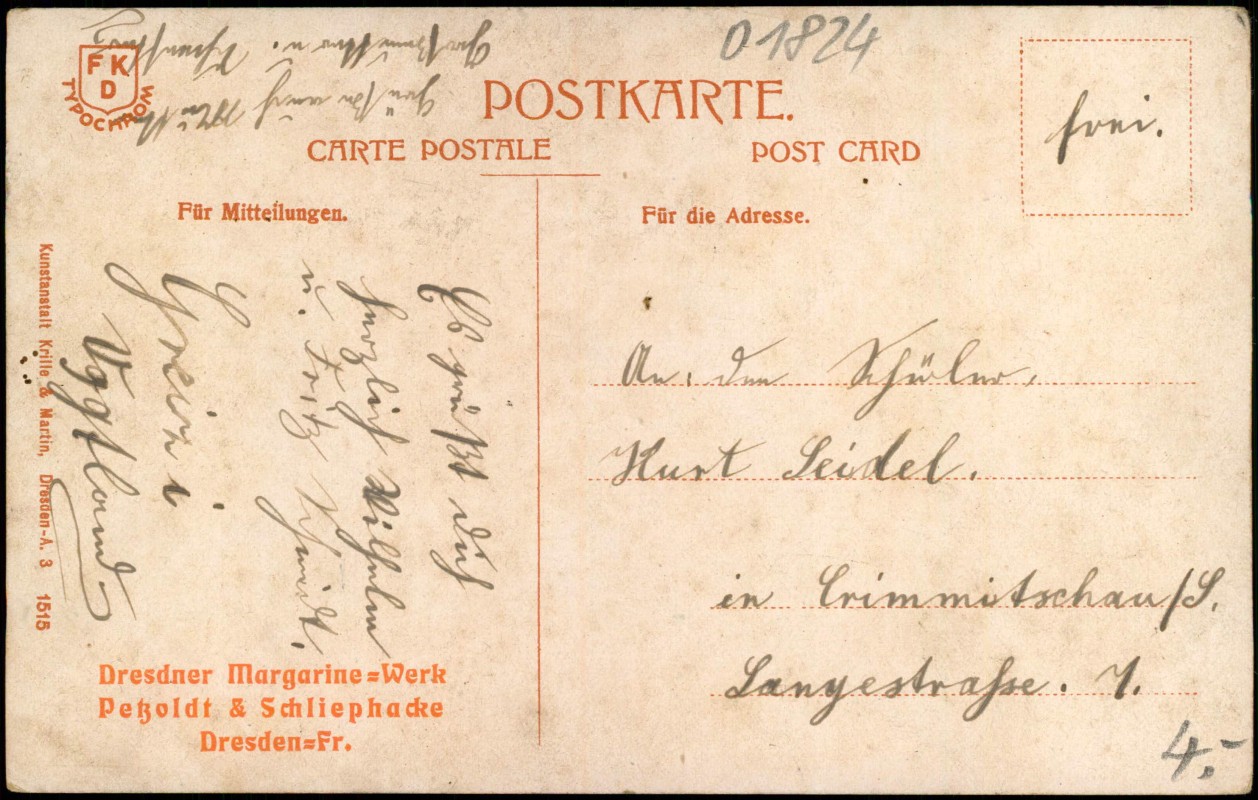 01824
FKD
TYPOCHROM
POSTKARTE.
CARTE POSTALE
POST CARD
frei.
Für Mitteilungen.
Für die Adresse.
Es grüßt dich
herzlich Wilhelm
u. Fritz Schmidt.
Vogtland
Grüßen auch
Großmutter u.
An den Schüler,
Kurt Seidel.
in Crimmitschau/S.
Langestrasse. 1.
4.-
Kunstanstalt Krille & Martin, Dresden-A. 3 1515
Dresdner Margarine=Werk
Petzoldt & Schliephacke
Dresden=Fr.